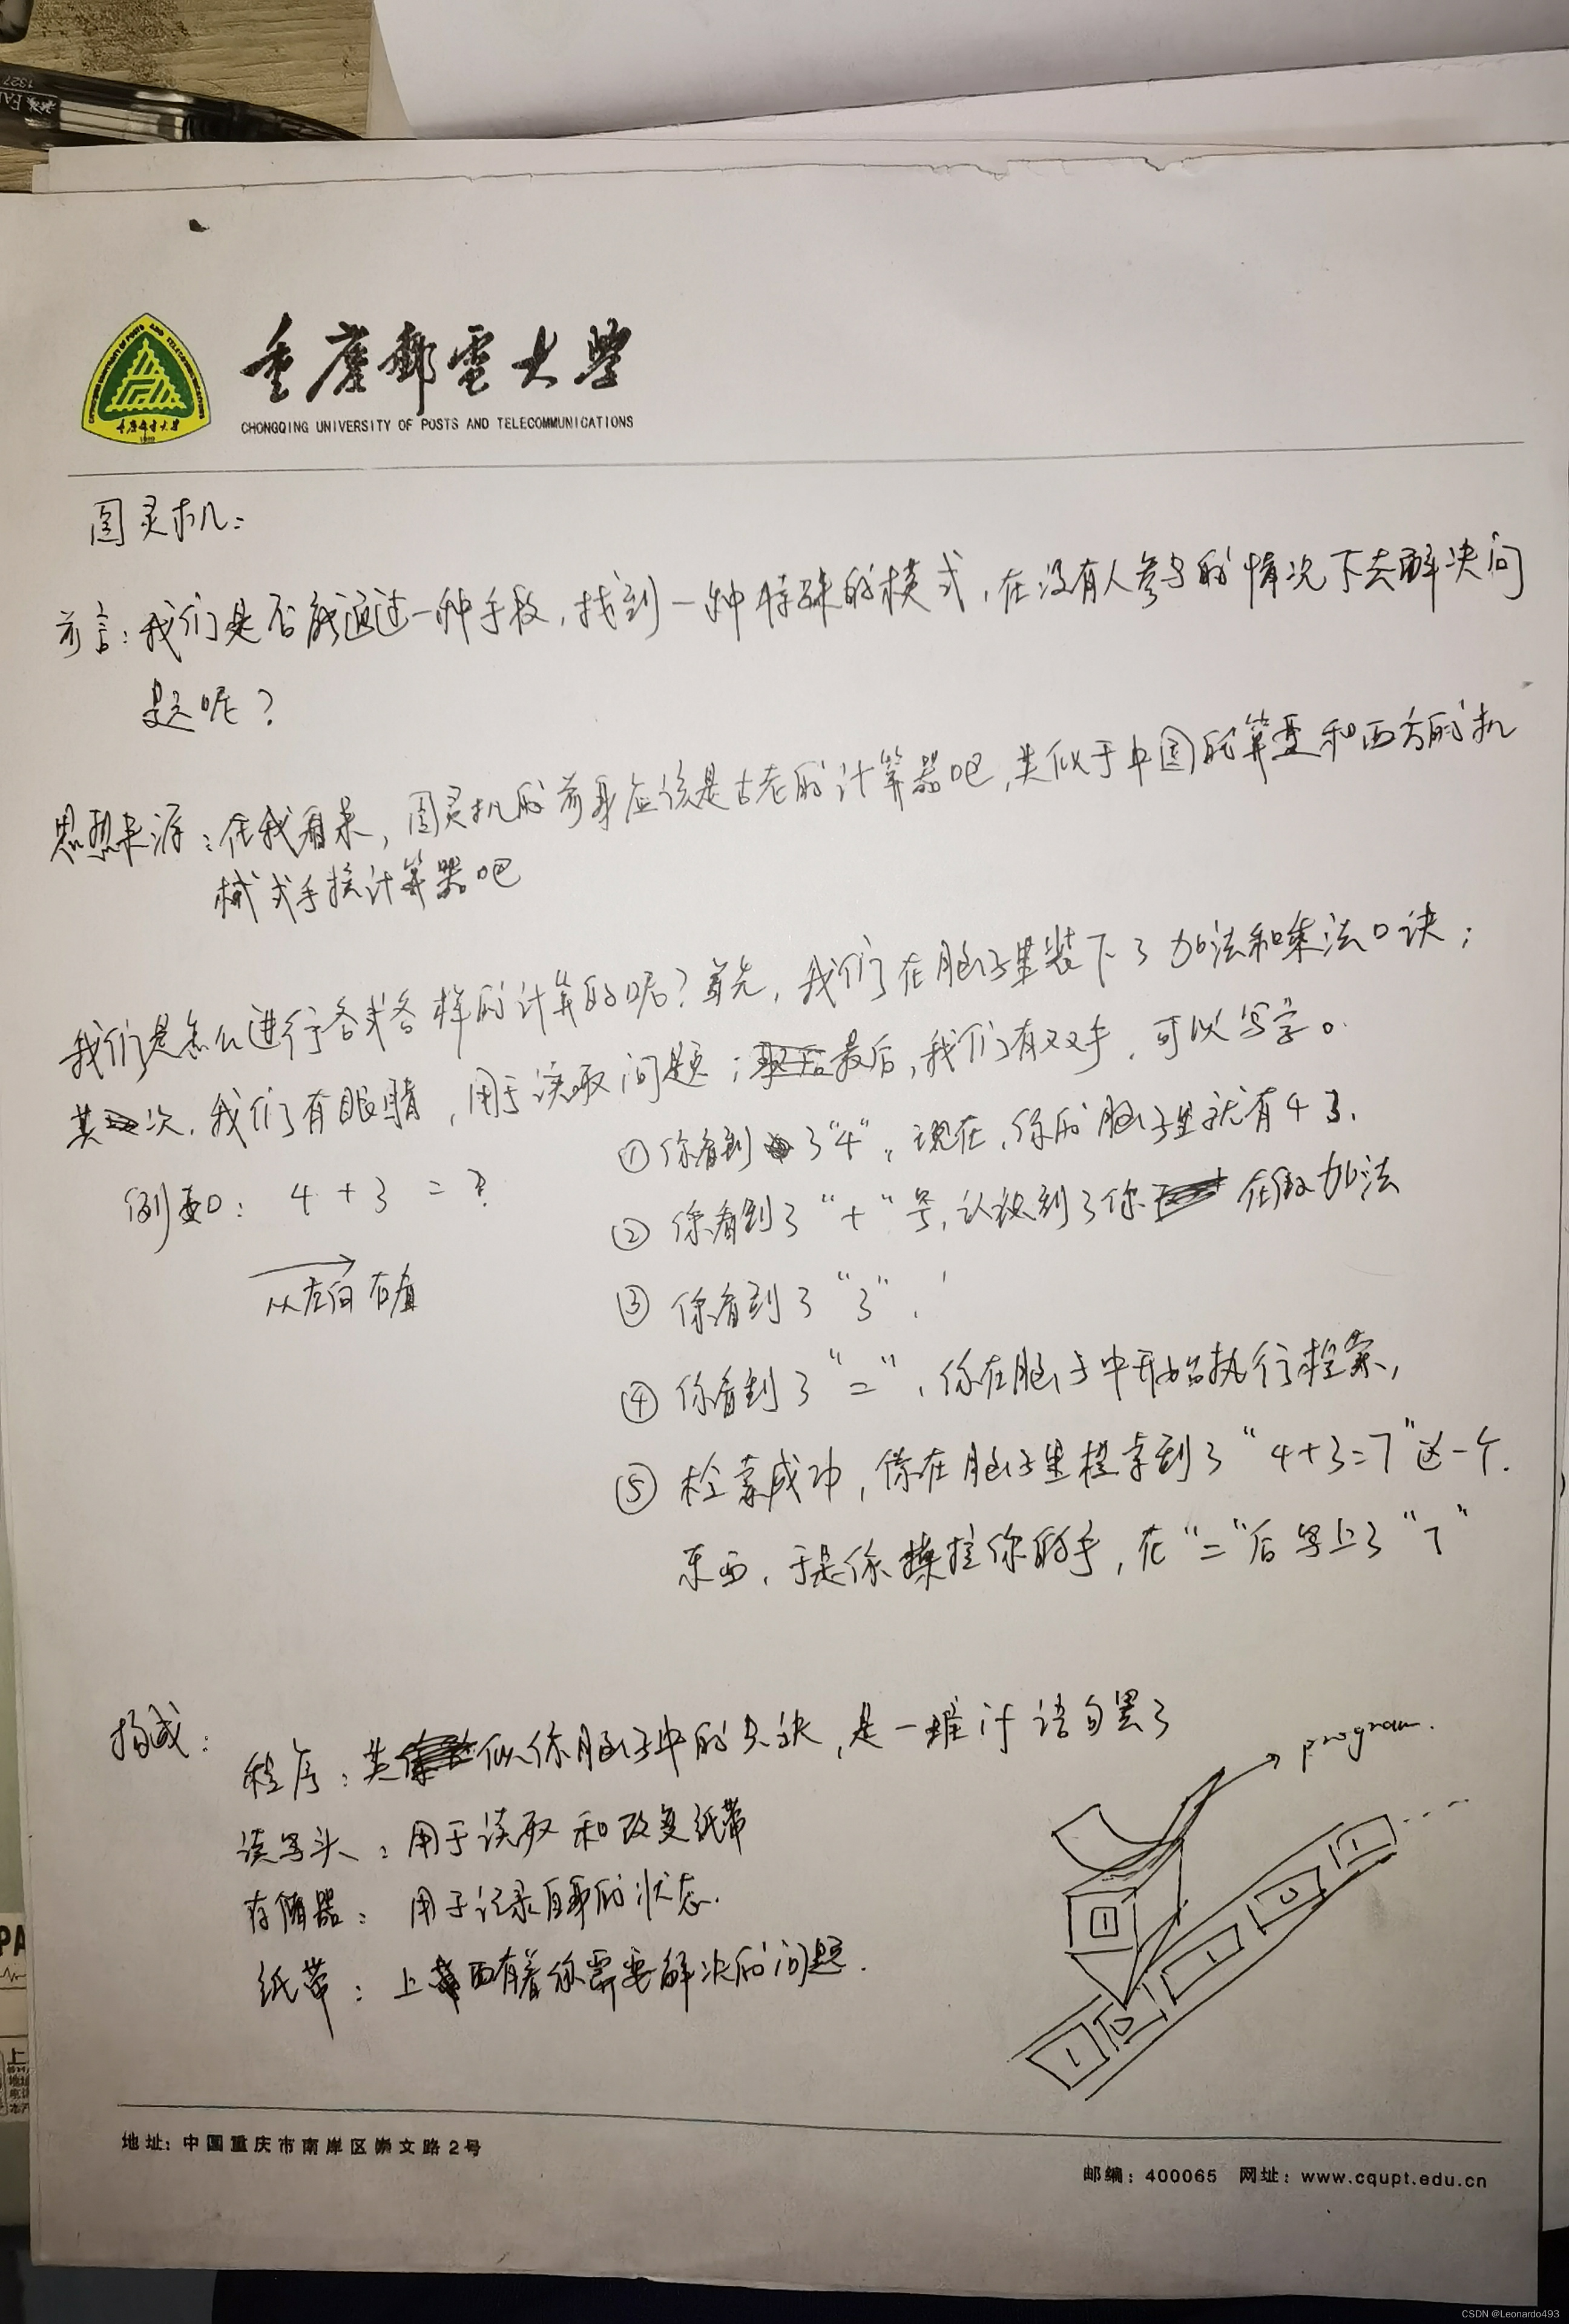 重慶郵電大學
CHONGQING UNIVERSITY OF POSTS AND TELECOMMUNICATIONS
图灵机:
前言:我们是否能通过一种手段,找到一种特殊的模式,在没有人参与的情况下去解决问
题呢?
思想来源:在我看来,图灵机的前身应该是古老的计算器吧,类似于中国的算盘和西方的机
械式手摇计算器吧
我们是怎么进行各式各样的计算的呢?首先,我们在脑子里装下了加法和乘法口诀;
其次,我们有眼睛,用于读取问题;最后,我们有双手,可以写字。
例如: 4 + 3 = ?
从左向右看
① 你看到了"4",现在,你的脑子里就有4了.
② 你看到了"+"号,认识到了你在做加法
③ 你看到了"3".
④ 你看到了"=",你在脑子中开始执行检索,
⑤ 检索成功,你在脑子里检索到了"4+3=7"这一个.
东西,于是你操控你的手,在"="后写上了"7"
构成:
程序:类似你脑子中的口诀,是一堆语句罢了
读写头:用于读取和改变纸带
存储器:用于记录自身的状态.
纸带:上面有着你需要解决的问题.
program.
1
1 0 1 0 1
地址:中国重庆市南岸区崇文路2号
邮编:400065 网址:www.cqupt.edu.cn
CSDN @Leonardo493